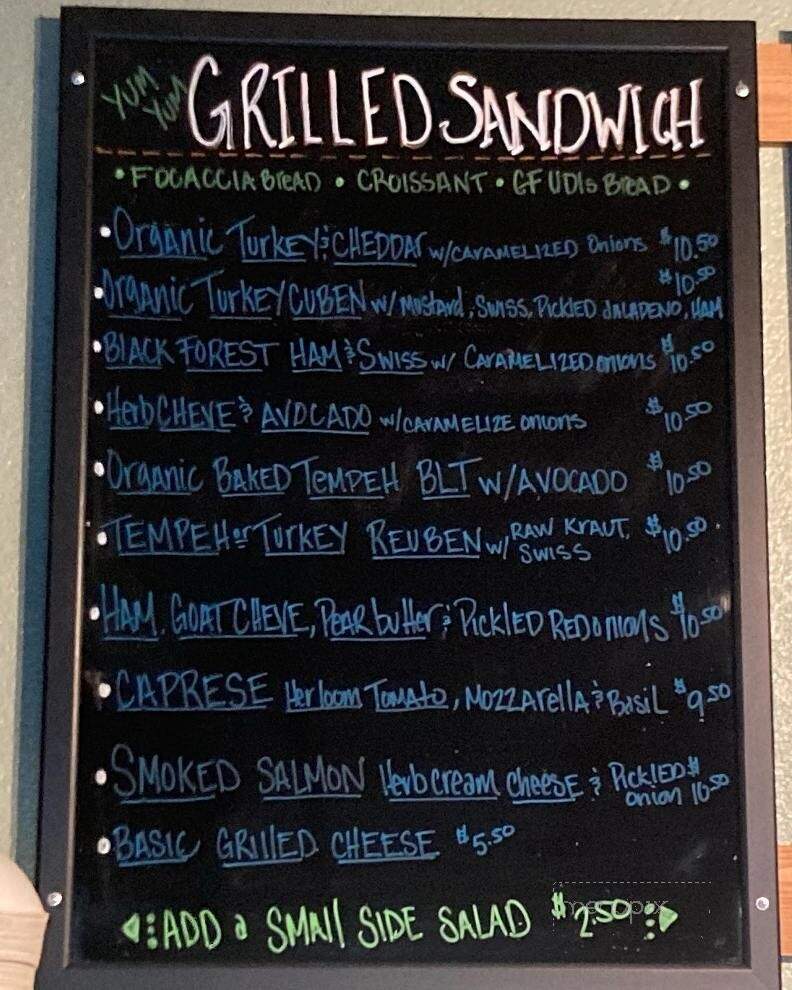 YUM
YUM
GRILLED SANDWICH
• FOCACCIA BREAD • CROISSANT • GF UDIs BREAD •
• Organic Turkey & CHEDDAR w/CARAMELIZED Onions $10.50
$10.50
• Organic Turkey CUBEN w/ Mustard, Swiss, Pickled JALAPENO, HAM
• BLACK FOREST HAM & Swiss w/ CARAMELIZED onions $10.50
• Herb CHEVE & AVOCADO w/CARAMELIZE onions $10.50
• Organic BAKED TEMPEH BLT w/AVOCADO $10.50
• TEMPEH or Turkey REUBEN w/ RAW KRAUT, SWISS $10.50
• HAM, GOAT CHEVE, PEAR butter & PickLED RED onions $10.50
• CAPRESE Herloom Tomato, MOZZArellA & BasiL $9.50
• SMOKED SALMON Herb Cream Cheese & PickLED onion $10.50
• BASIC GRIllED CHEESE $5.50
ADD a SMAll SIDE SALAD $2.50
menupix